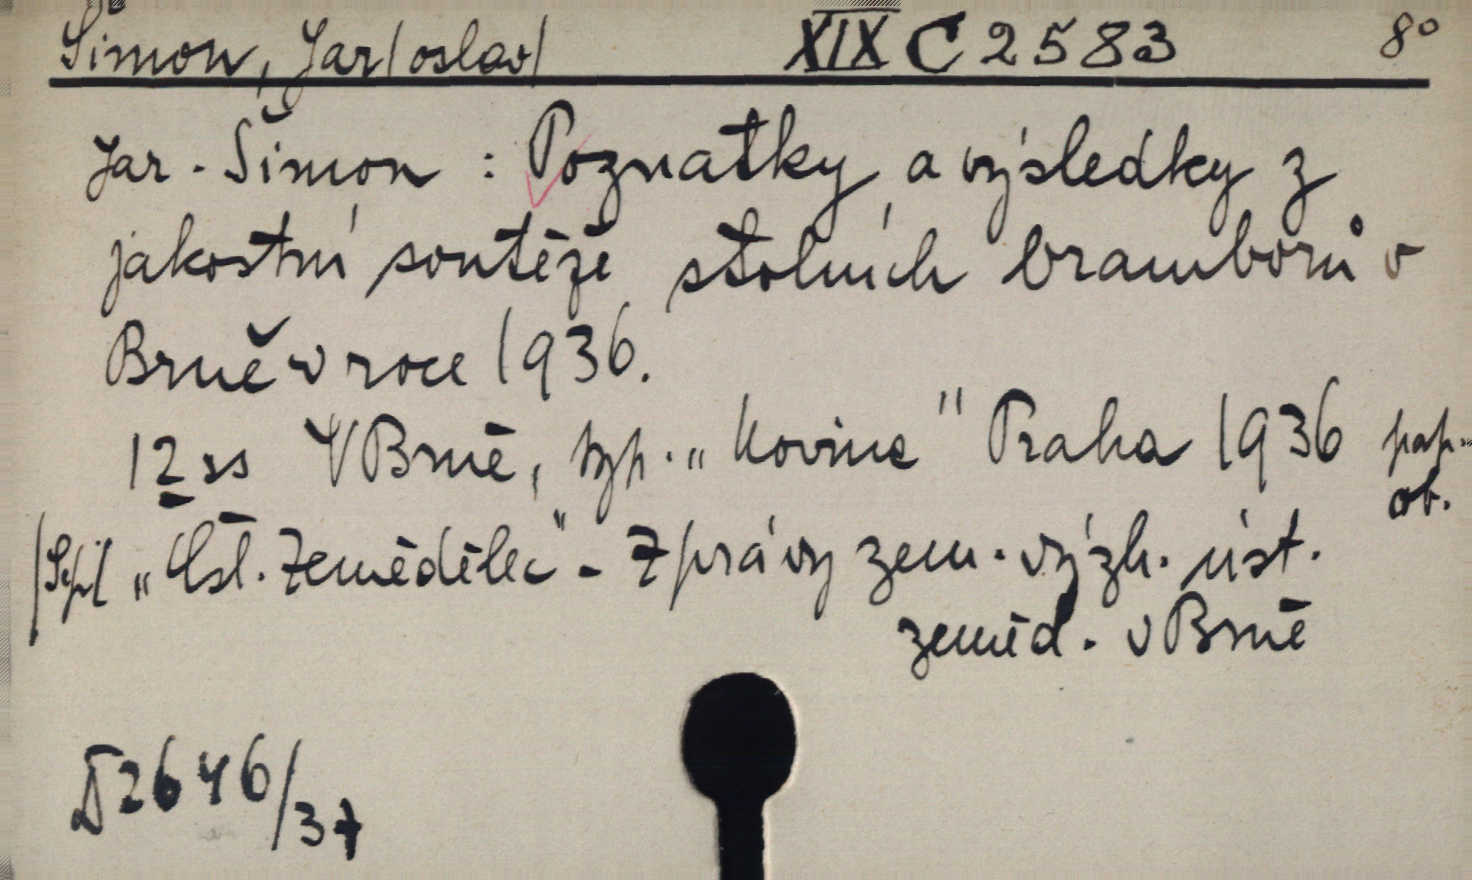 Šimon, Jar/oslav/ XIX C 2583 8°
Jar. Šimon : Poznatky a výsledky z
jakostní soutěže stolních bramborů v
Brně v roce 1936.
12 ss V Brně, typ. „Kovina" Praha 1936 pap.
ob.
„Čsl. Zemědělec" - Zprávy zem. výzk. úst.
zeměd. v Brně
2646/37